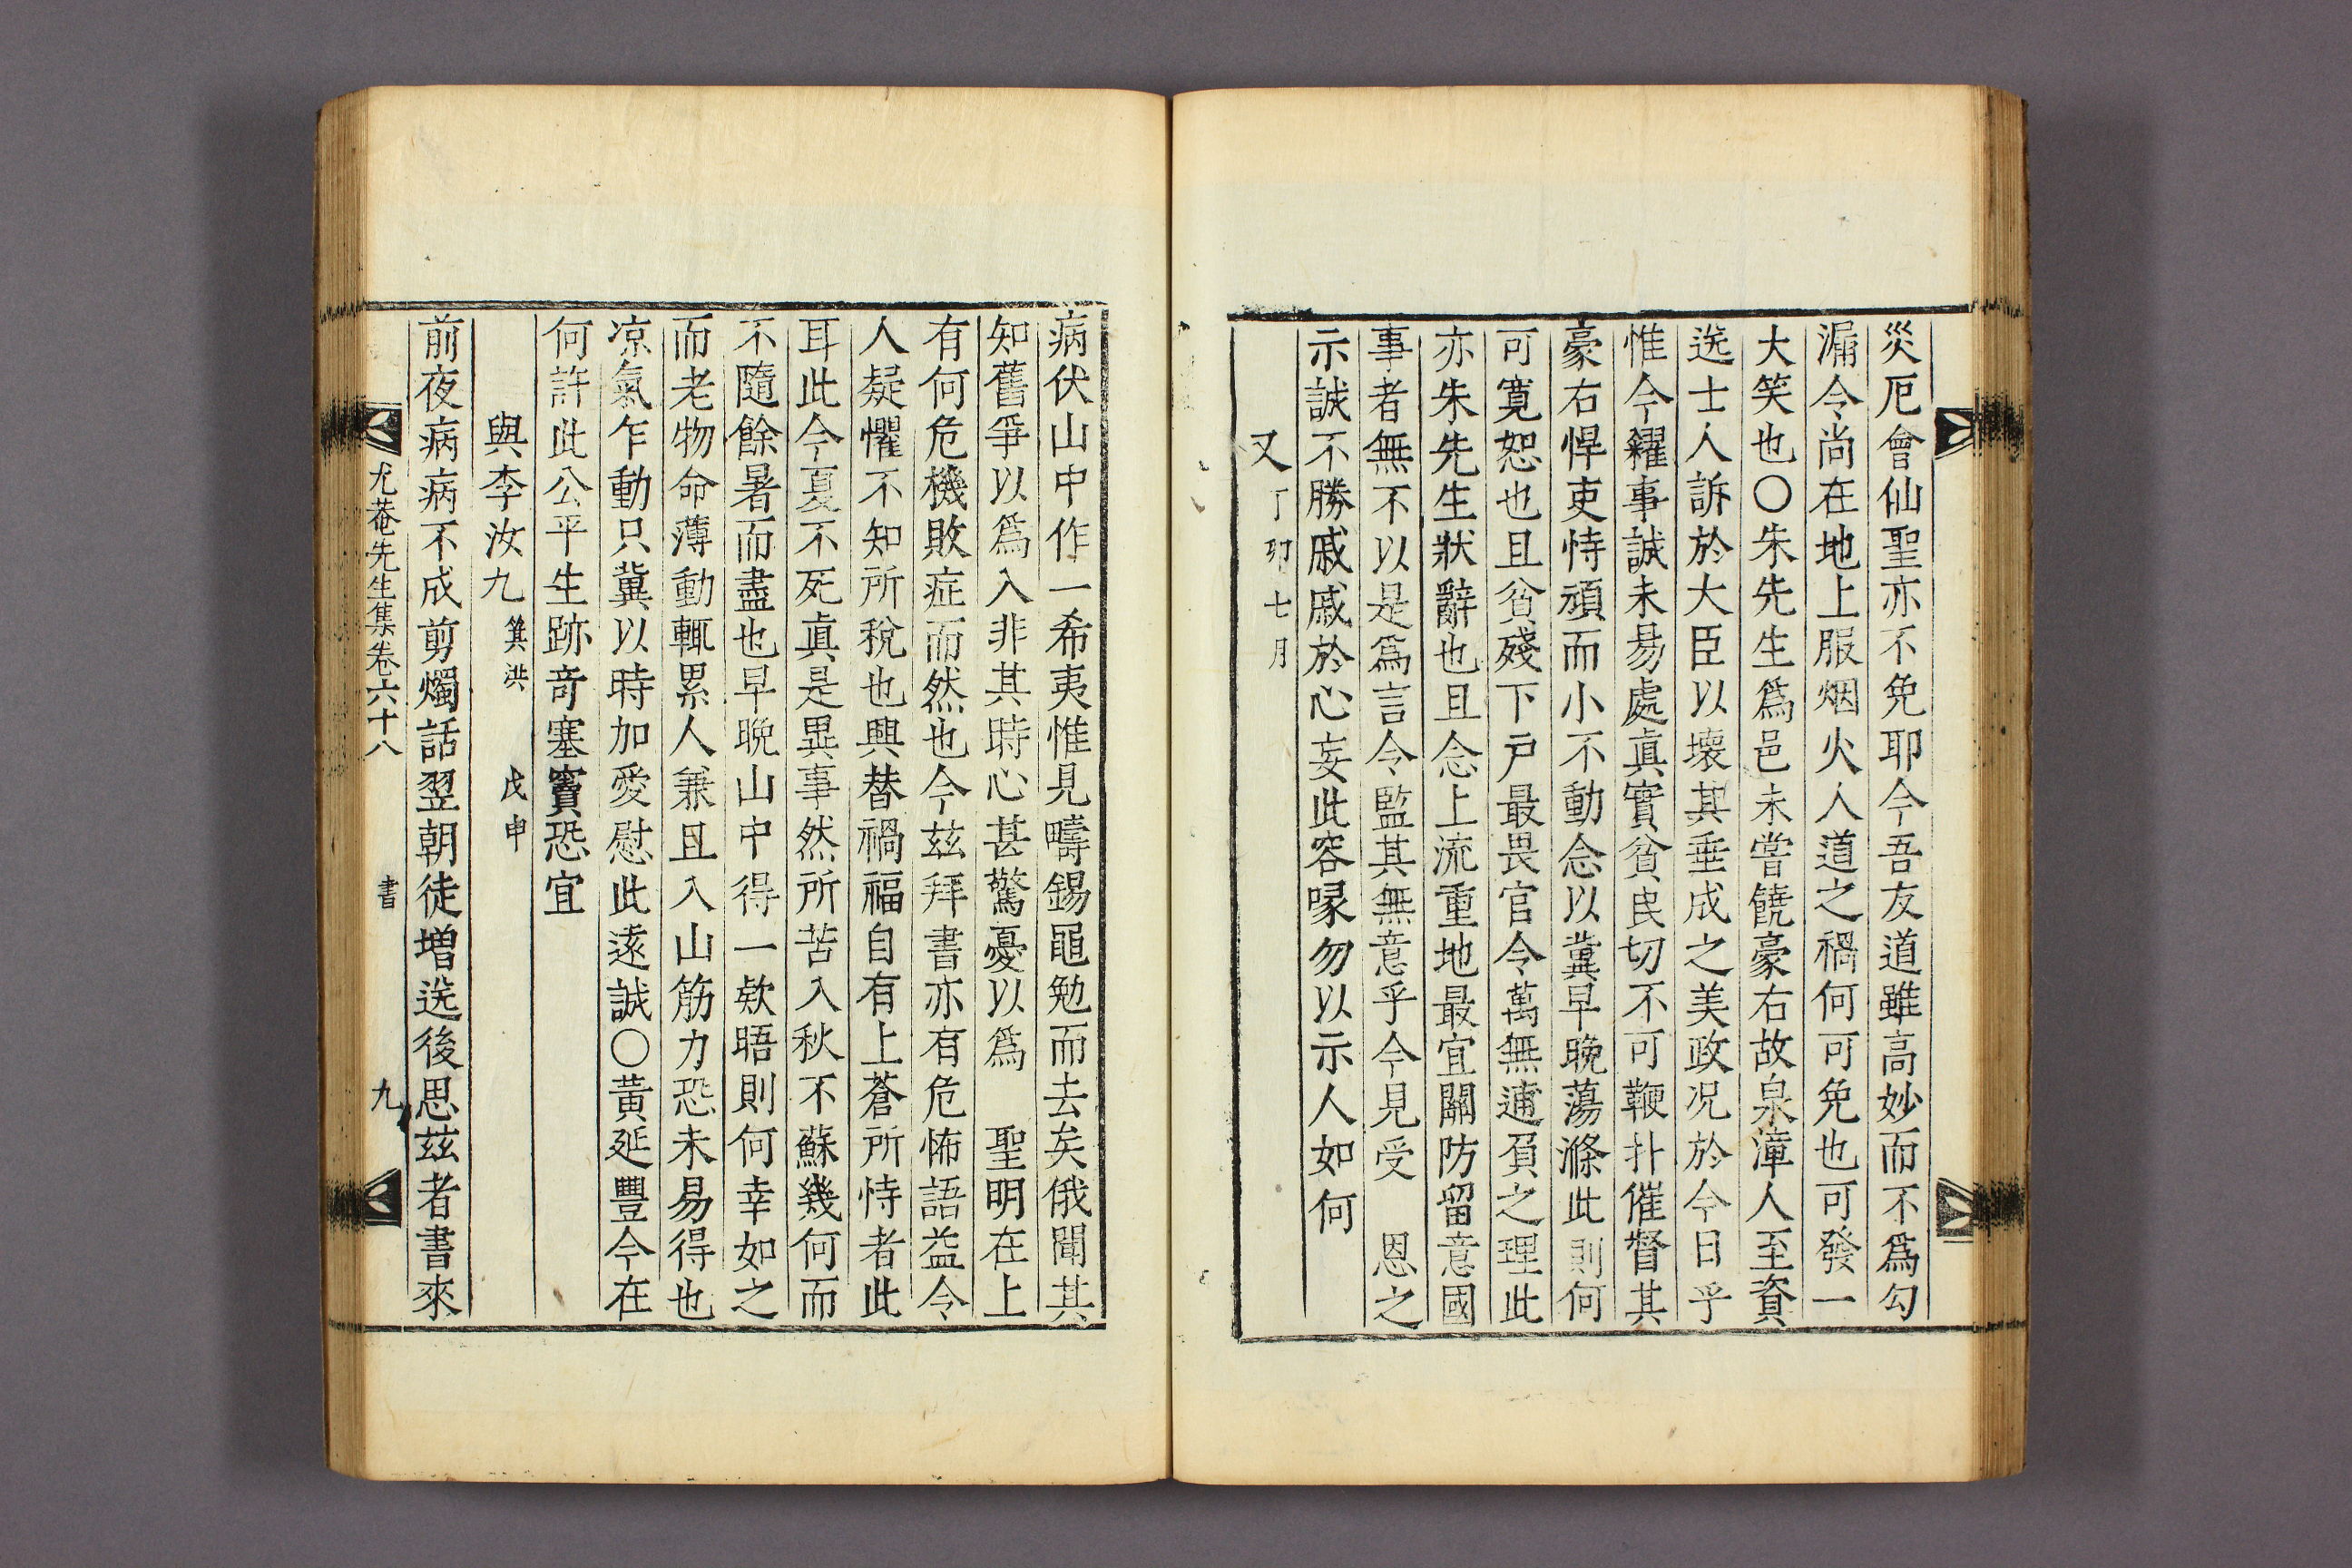 災厄會仙聖亦不免耶今吾友道雖高妙而不爲勾
漏令尚在地上服烟火人道之禍何可免也可發一
大笑也○朱先生爲邑未嘗饒豪右故泉漳人至資
送士人訴於大臣以壞其垂成之美政况於今日乎
惟今糴事誠未易處眞實貧民切不可鞭扑催督其
豪右悍吏恃頑而小不動念以冀早晚蕩滌此則何
可寬恕也且貧殘下戶最畏官令萬無逋負之理此
亦朱先生狀辭也且念上流重地最宜關防留意國
事者無不以是爲言今監其無意乎今見受　恩之
示誠不勝戚戚於心妄此容喙勿以示人如何
又丁卯七月
病伏山中作一希夷惟見疇錫黽勉而去矣俄聞其
知舊爭以爲入非其時心甚驚憂以爲　聖明在上
有何危機敗症而然也今玆拜書亦有危怖語益令
人疑懼不知所稅也興替禍福自有上蒼所恃者此
耳此今夏不死眞是異事然所苦入秋不蘇幾何而
不隨餘暑而盡也早晚山中得一欵晤則何幸如之
而老物命薄動輒累人兼且入山筋力恐未易得也
凉氣乍動只冀以時加愛慰此遠誠○黃延豐今在
何許此公平生跡奇塞竇恐宜
與李汝九箕洪　戊申
前夜病病不成剪燭話翌朝徒增送後思玆者書來
尤菴先生集卷六十八　書　九